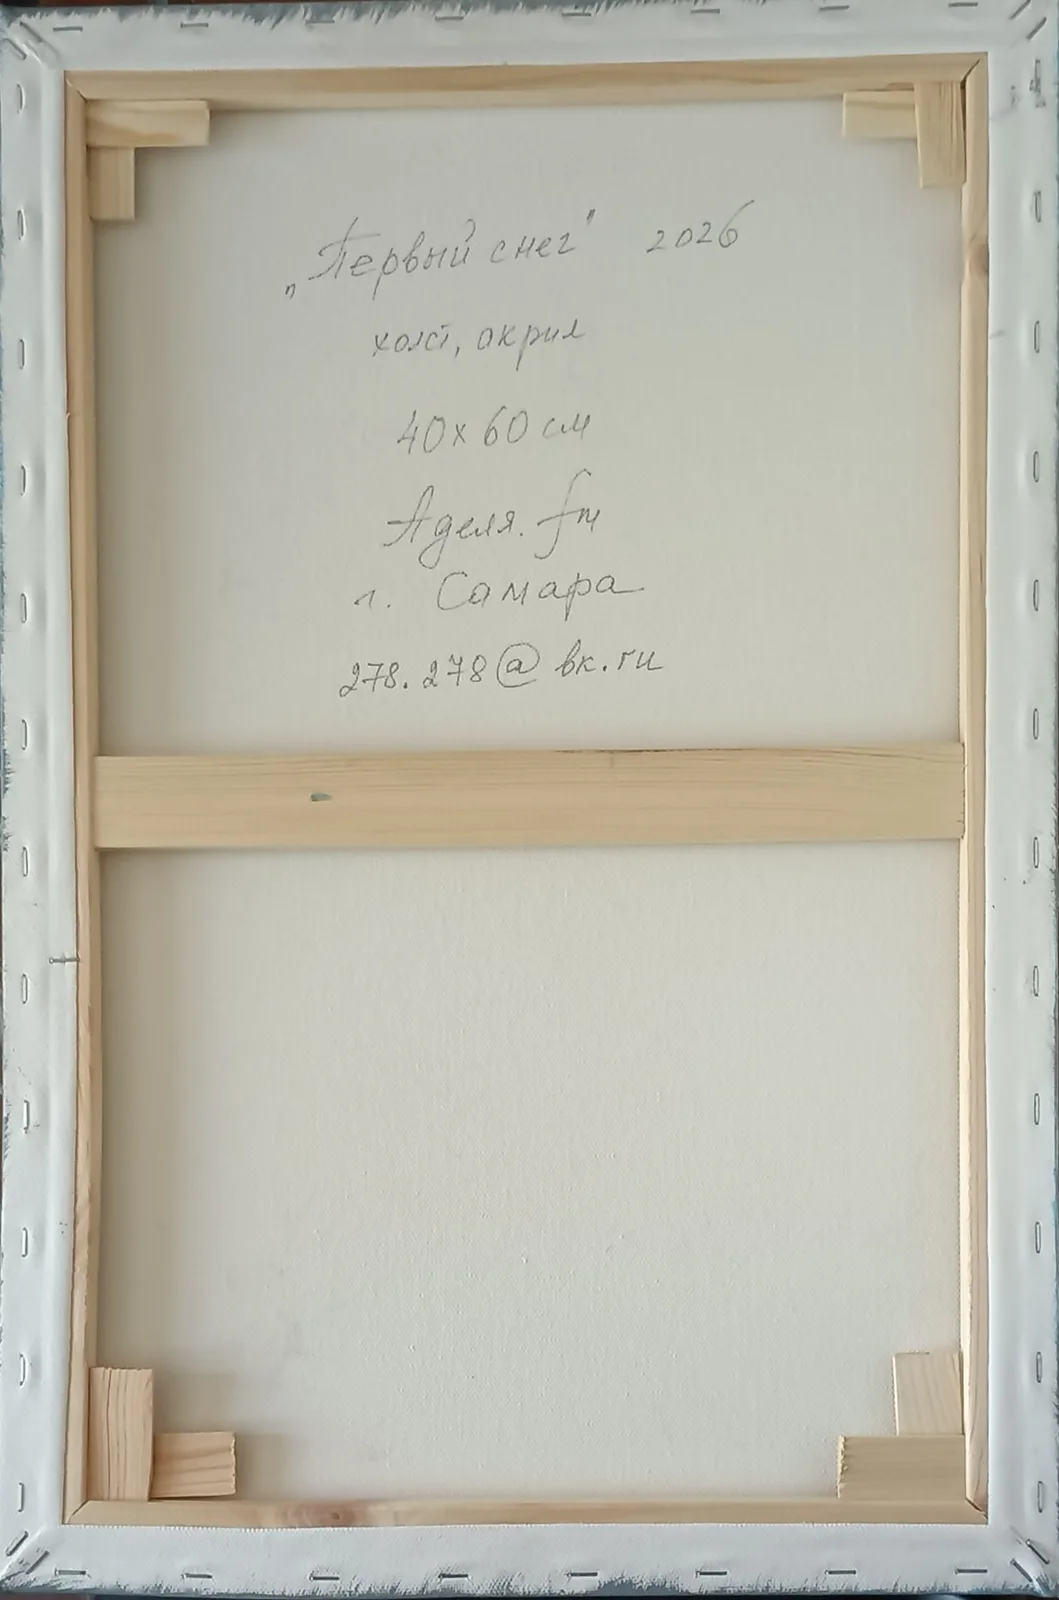 „Первый снег" 2026
холст, акрил
40х60 см
Аделя.fm
г. Самара
278.278@bk.ru